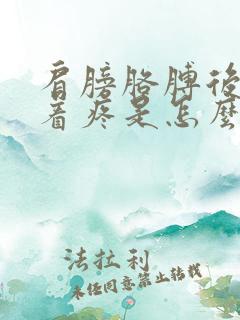 肩膀胳膊後
着疼是怎麼
法拉利
未任同意禁止转载